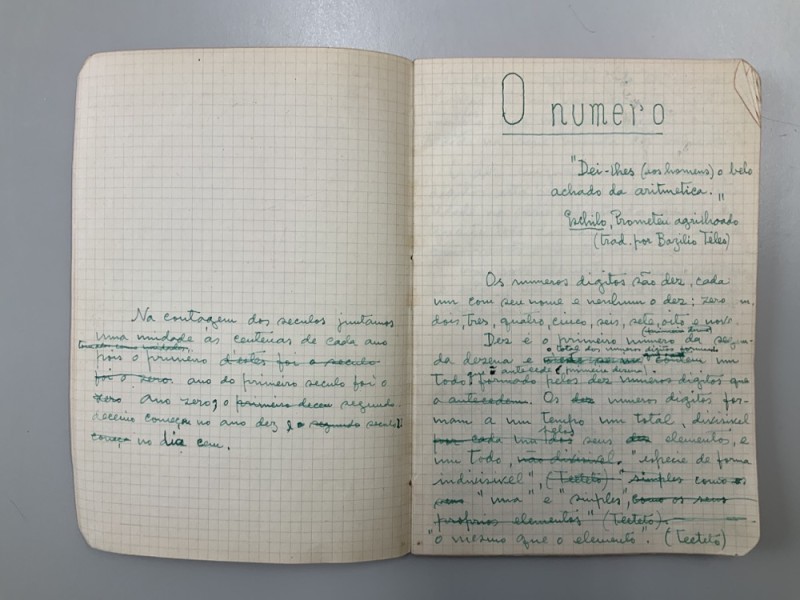 Na contagem dos seculos juntamos
uma unidade ás centenas de cada ano
pois o primeiro d'eles foi o seculo
foi o zero. ano do primeiro seculo foi o
zero ano zero, o primeiro decen segundo
decenio começou no ano dez, o segundo seculo
começa no dia cem.
O numero
"Dei-lhes (aos homens) o belo
achado da aritmetica."
Eschilo, Prometeu agrilhoado
(trad. por Bazilio Teles)
Os numeros digitos são dez, cada
um com seu nome e nenhum o dez: zero, um,
dois, tres, quatro, cinco, seis, sete, oito e nove.
Dez é o primeiro numero da segun-
total dos numeros digitos
da dezena e contem um
que antecede (primeira dezena).
todo formado pelos dez numeros digitos que
o antecedem. Os dez numeros digitos for-
mam a um tempo um total, divisivel
pelos
por cada um dos seus dez elementos, e
um todo, não divisivel. "especie de forma
indivisivel", (Teeteto) "simples como os
seus "una" e "simples", como os seus
proprios elementos" (Teeteto).
"o mesmo que o elemento". (Teeteto)